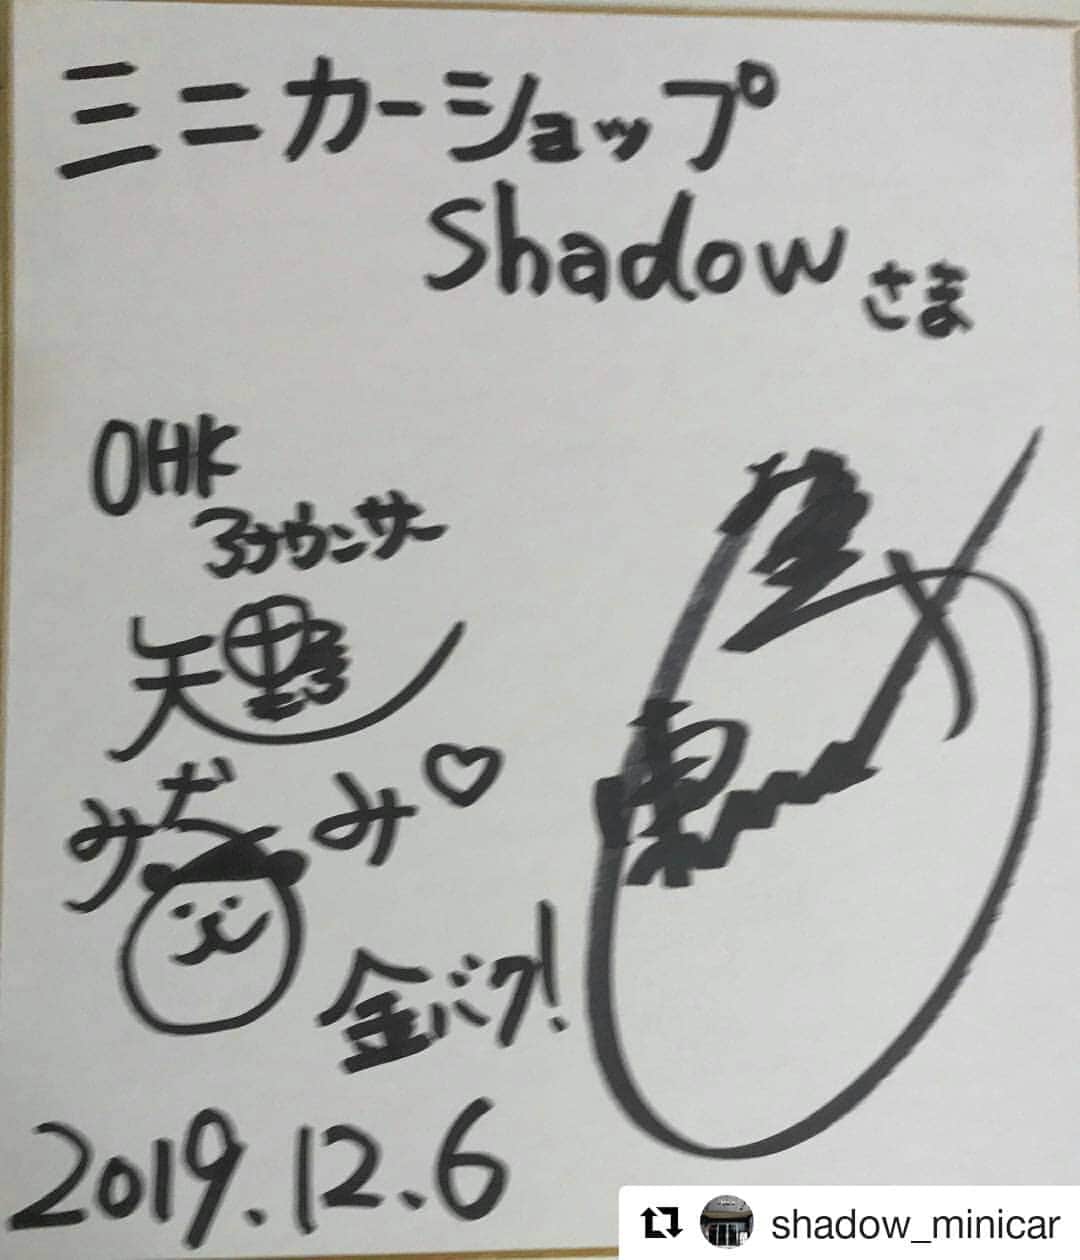 ミニカーショップ
Shadow さま
OHK
アナウンサー
矢野
みなみ♡
金バク!
2019.12.6
shadow_minicar